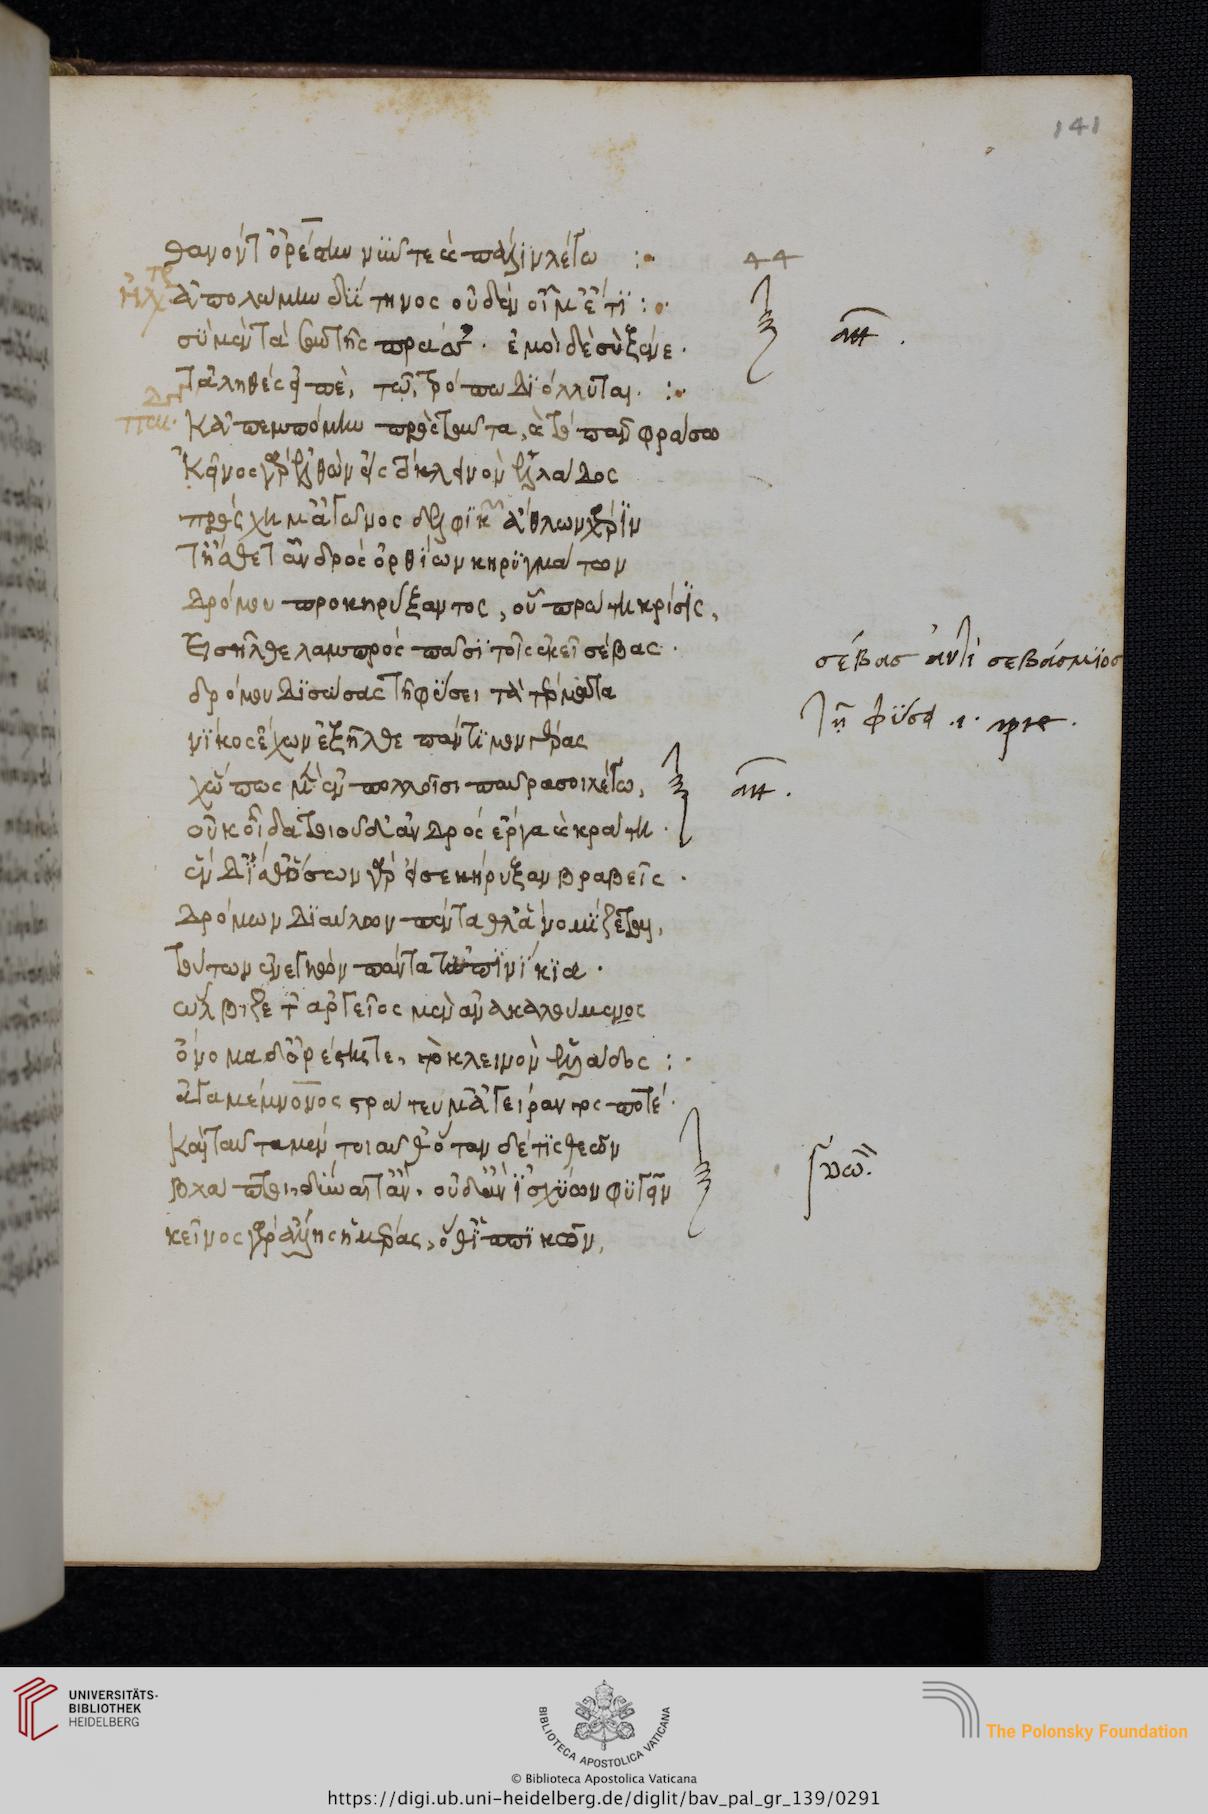 141
44
θανόντ' ὀρέστην νῦν τε καὶ πάλιν λέγω :
ἠλέκτρ ἀπολώμην δύστηνος οὐδὲν εἶμ' ἔτι :
σὺ μὲν τὰ σαυτῆς πρᾶσσ'· ἐμοὶ δὲ σὺ ξένε·
τἀληθὲς εἰπὲ, τῷ τρόπῳ διόλλυται. :
παι. κἀπεμπόμην πρὸς ταῦτα, καὶ τὸ πᾶν φράσω
κεῖνος γὰρ ἐλθὼν εἰς τὸ κλεινὸν ἑλλάδος
πρόσχημ' ἀγῶνος δελφικῶν ἄθλων χάριν
ᾔσθετ' ἀνδρὸς ὀρθίων κηρυγμάτων
δρόμου προκηρύξαντος, οὗ πρώτη κρίσις,
εἰσῆλθε λαμπρὸς πᾶσι τοῖς ἐκεῖ σέβας·
σέβας ἀντὶ σεβάσμιος
δρόμου δ' ἰσώσας τῇ φύσει τὰ τέρματα
τῇ φύσει .ι.
νίκος ἔχων ἐξῆλθε πάντιμον γέρας
χὤπως μὲν ἐν πολλοῖσι παῦρά σοι λέγω,
οὐκ οἶδα τοιοῦδ' ἀνδρὸς ἔργα καὶ κράτη·
ἓν δ' ἴσθ' ὅσων γὰρ εἰσεκήρυξαν βραβεῖς·
δρόμων διαύλων πένταθλ' ἃ νομίζεται,
τούτων ἐνεγκὼν πάντα τἀπινίκια·
ὠλβίζετ' ἀργεῖος μὲν ἀνακαλούμενος
ὄνομα δ' ὀρέστης, τὸ κλεινὸν ἑλλάδος :
ἀγαμέμνονος στράτευμ' ἀγείραντος ποτέ·
καὶ ταῦτα μὲν τοιαῦθ' ὅταν δέ τις θεῶν
βλάπτῃ, δύναιτ' ἂν, οὐδ' ἂν ἰσχύων φυγεῖν
κεῖνος γὰρ ἄλλης ἡμέρας, ὅθ' ἱππικῶν,
UNIVERSITÄTS-
BIBLIOTHEK
HEIDELBERG
BIBLIOTECA APOSTOLICA VATICANA
The Polonsky Foundation
© Biblioteca Apostolica Vaticana
https://digi.ub.uni-heidelberg.de/diglit/bav_pal_gr_139/0291